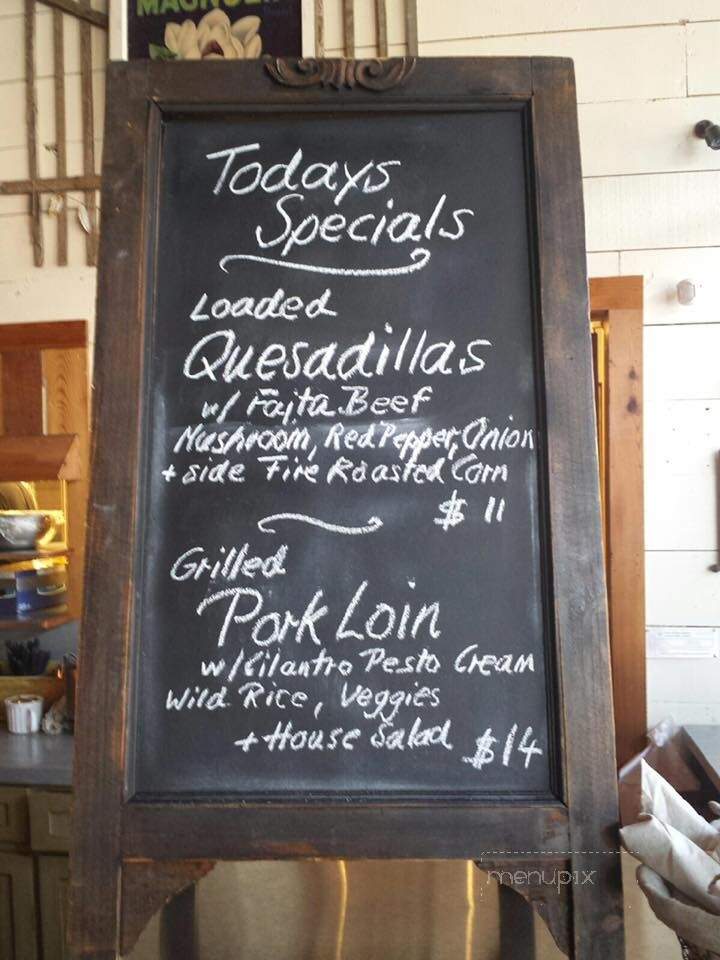 MAGNOLI
Todays
Specials
Loaded
Quesadillas
w/ Fajta Beef
Mushroom, Red Pepper, Onion
+ side Fire Roasted Corn
$ 11
Grilled
Pork Loin
w/Cilantro Pesto Cream
Wild Rice, Veggies
+ House Salad $14
menupix